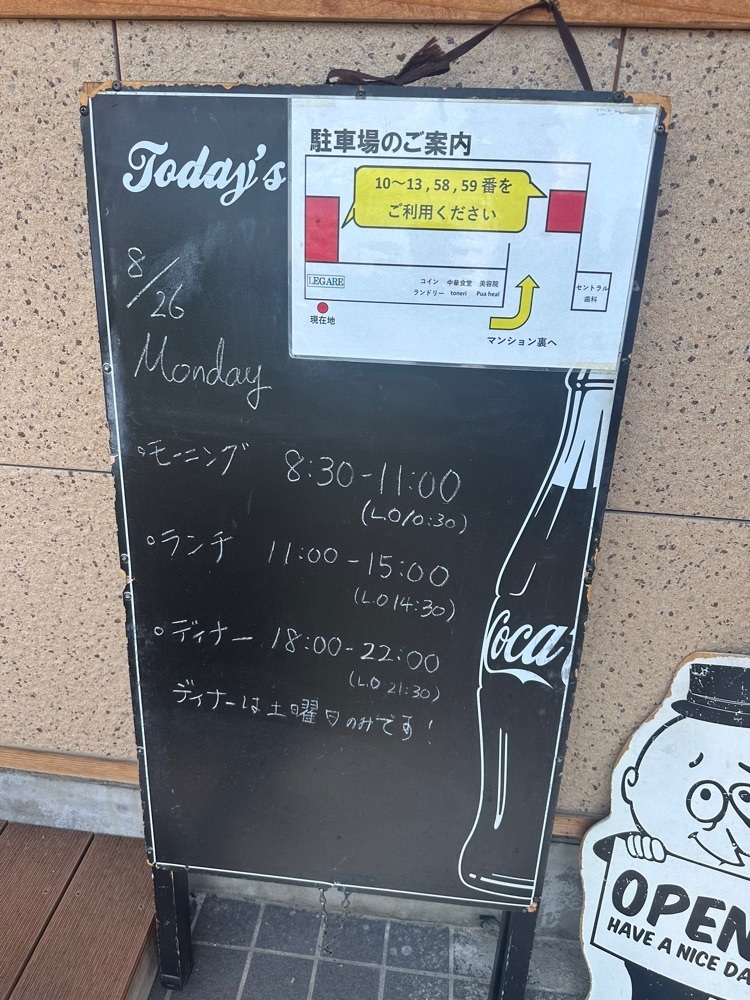 Today's
駐車場のご案内
10〜13 , 58 , 59 番を
ご利用ください
LEGARE
コイン 中華食堂 美容院
ランドリー toneri Pua heal
セントラル
歯科
現在地
マンション裏へ
8/26
Monday
○モーニング 8:30-11:00
(L.O10:30)
○ランチ 11:00-15:00
(L.O14:30)
○ディナー 18:00-22:00
(L.O 21:30)
ディナーは土曜日のみです!
Coca
OPEN
HAVE A NICE DA